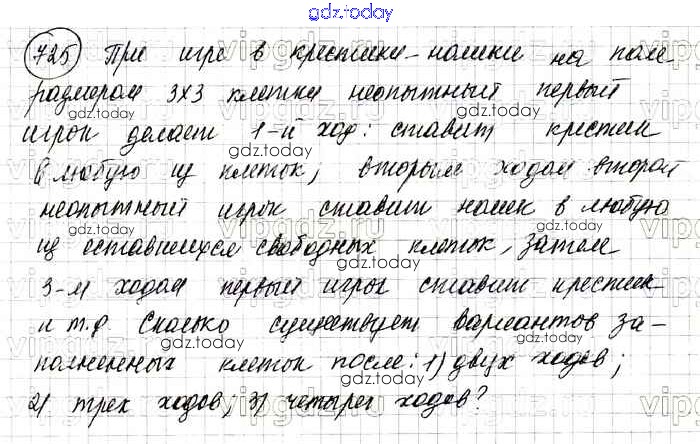 gdz.today
725 При игре в крестики-нолики на поле
размером 3х3 клетки неопытный первый
игрок делает 1-й ход: ставит крестик
в любую из клеток; вторым ходом второй
неопытный игрок ставит нолик в любую
из оставшихся свободных клеток, затем
3-м ходом первый игрок ставит крестик
и т.д. Сколько существует вариантов за-
полненных клеток после: 1) двух ходов;
2) трех ходов, 3) четырех ходов?